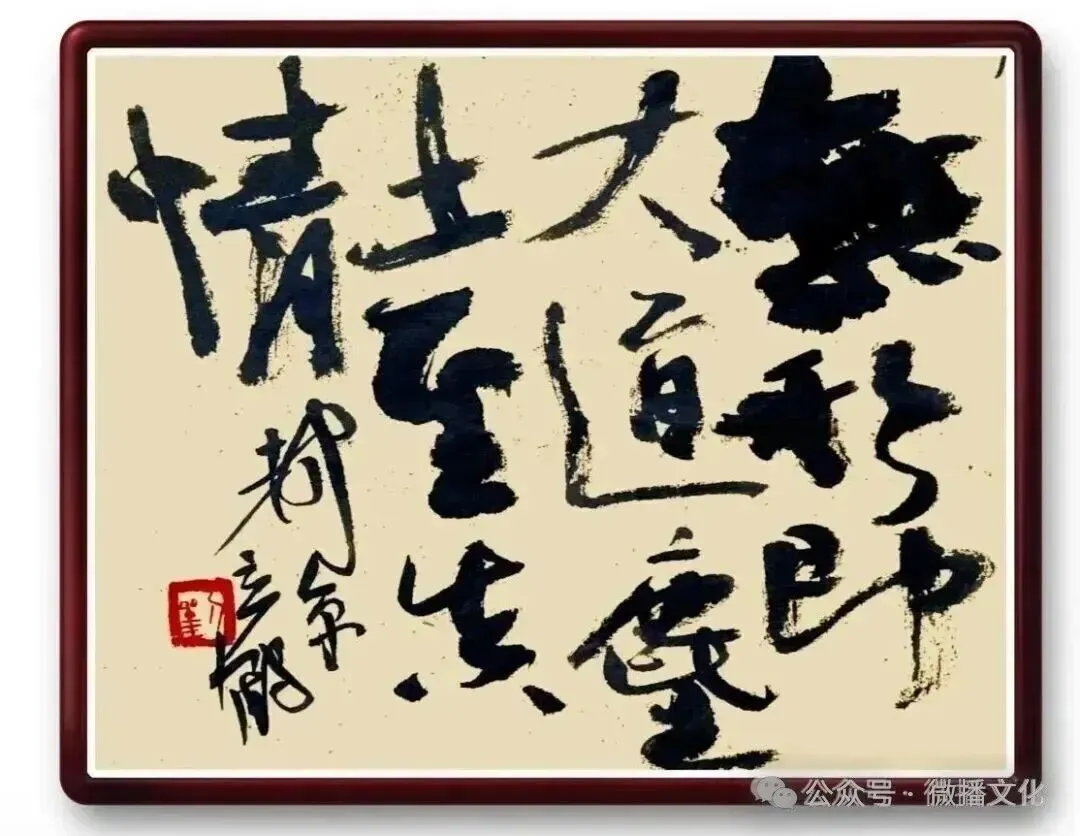 無形即
大道塵
土至真
情
公众号 · 微播文化